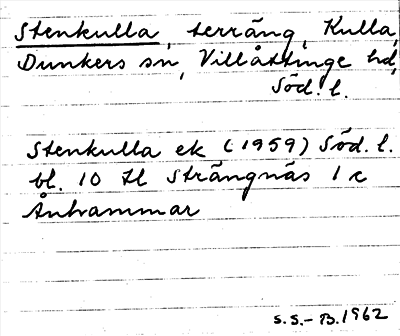 Stenkulla, terräng, Kulla,
Dunkers sn, Villåttinge hd,
Söd. l.
Stenkulla ek (1959) Söd. l.
bl. 10 H Strängnäs 1 c
Ånhammar
S.S.-B. 1962